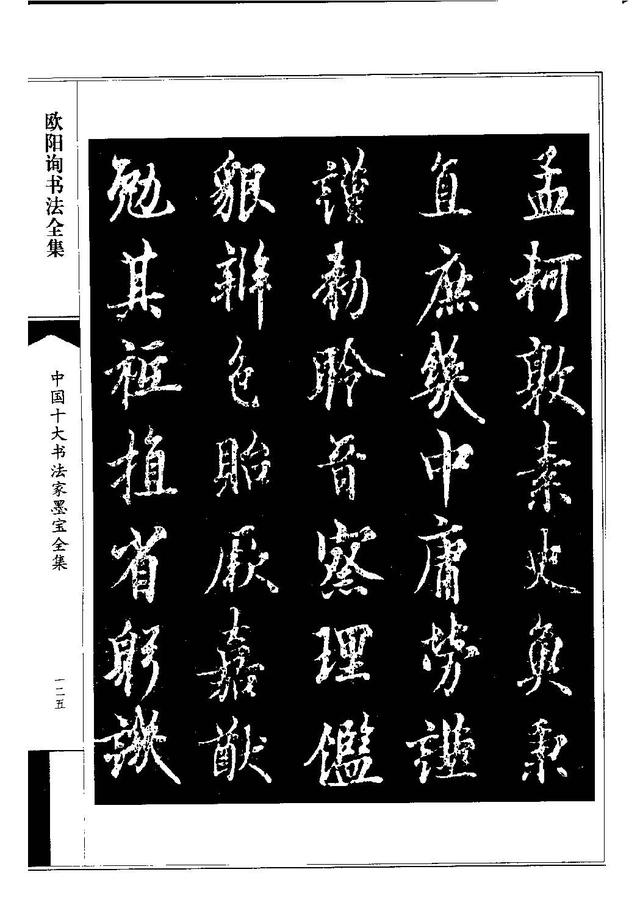 孟軻敦素史魚秉
直庶幾中庸勞謙
謹勅聆音察理鑑
貌辨色貽厥嘉猷
勉其祗植省躬譏
欧阳询书法全集
中国十大书法家墨宝全集
一二五